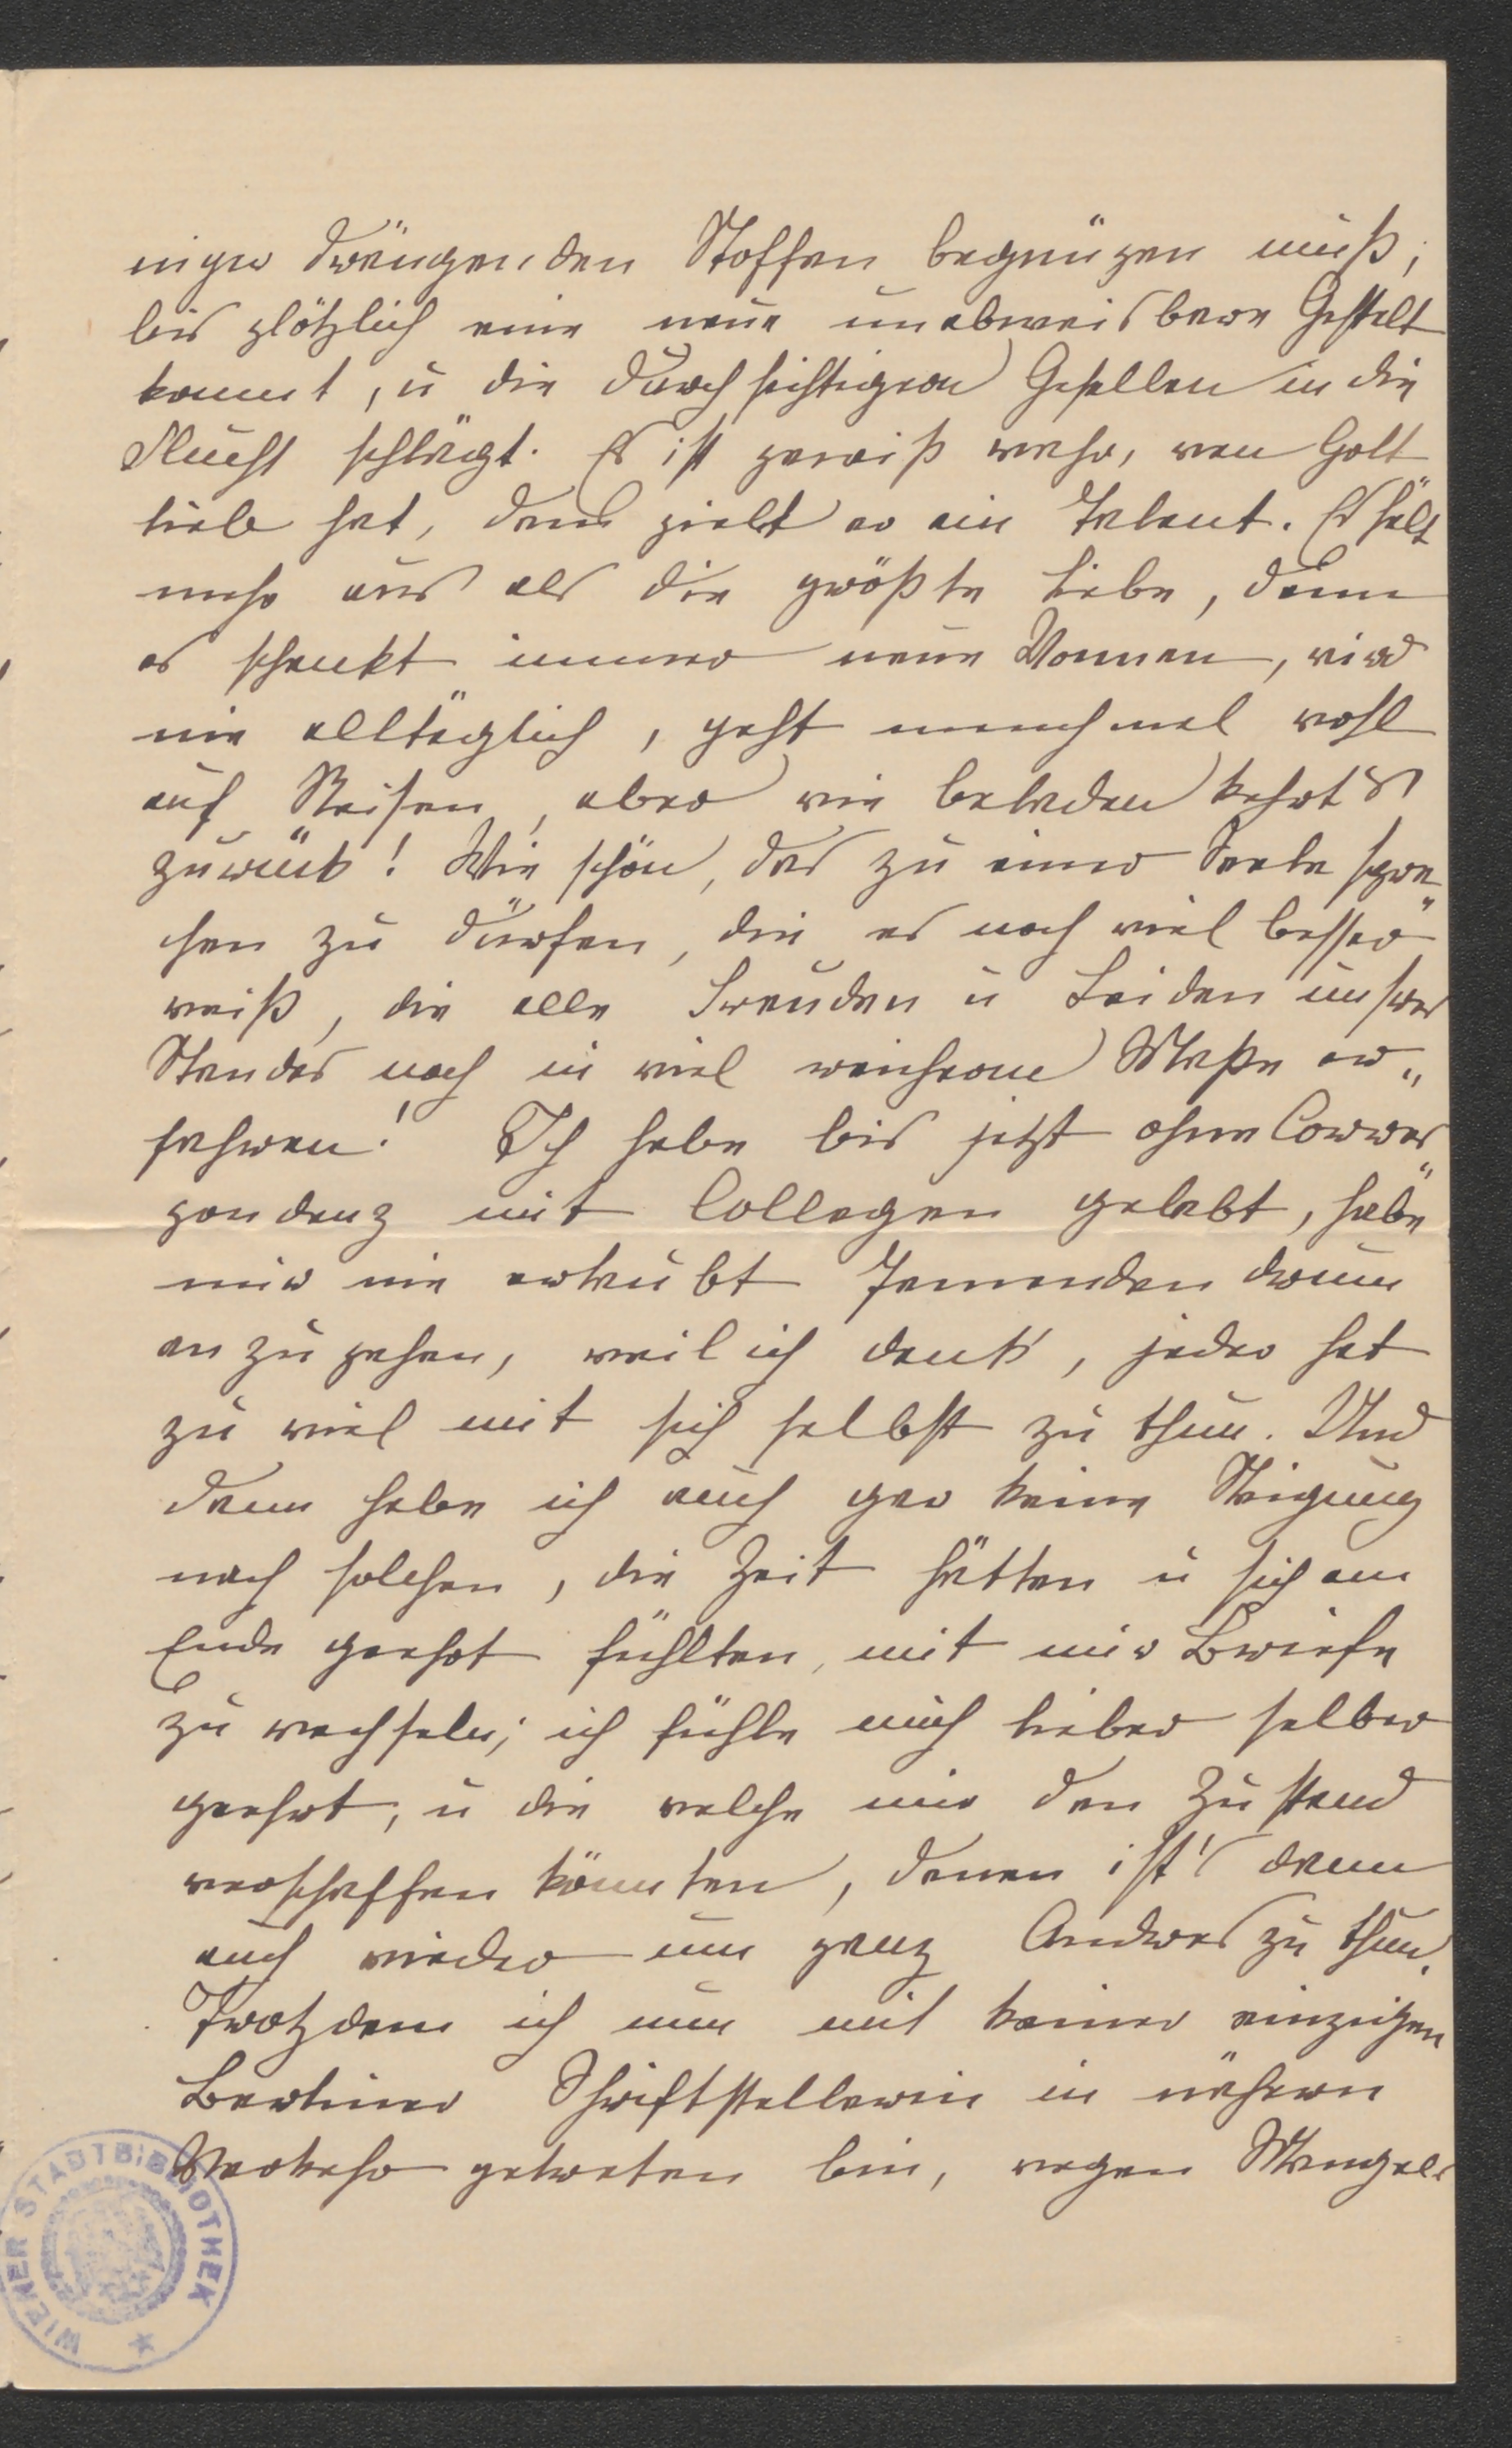 niger drängenden Stoffen begnügen muß,
bis plötzlich eine neue unabweisbare Gestalt
kommt, u die durchsichtigeren Gesellen in die
Flucht schlägt. Es ist gewiß wahr, wen Gott
lieb hat, dem giebt er ein Talent. Es hält
mehr aus als die größte Liebe, denn
es schenkt immer neue Wonnen, wird
nie alltäglich, geht manchmal wohl
auf Reisen, aber wie beladen kehrt's
zurück! Wie schön, das zu einer Seele spre„
chen zu dürfen, die es noch viel besser
weiß, die alle Freuden u Leiden unsres
Standes noch in viel reicherem Maße er„
fahren! Ich habe bis jetzt ohne Corres„
pondenz mit Collegen gelebt, habe
mir nie erlaubt Jemanden drum
anzugehen, weil ich denk', jeder hat
zu viel mit sich selbst zu thun. Und
dann habe ich auch gar keine Neigung
nach solchen, die Zeit hätten u sich am
Ende geehrt fühlten, mit mir Briefe
zu wechseln; ich fühle mich lieber selber
geehrt, u die welche mir den Zustand
verschaffen könnten, denen ist's dann
auch wieder um ganz Andres zu thun.
Trotzdem ich nun mit keiner einzigen
Berliner Schriftstellerin in nähern
Verkehr getreten bin, wegen Mangels
WIENER STADTBIBLIOTHEK